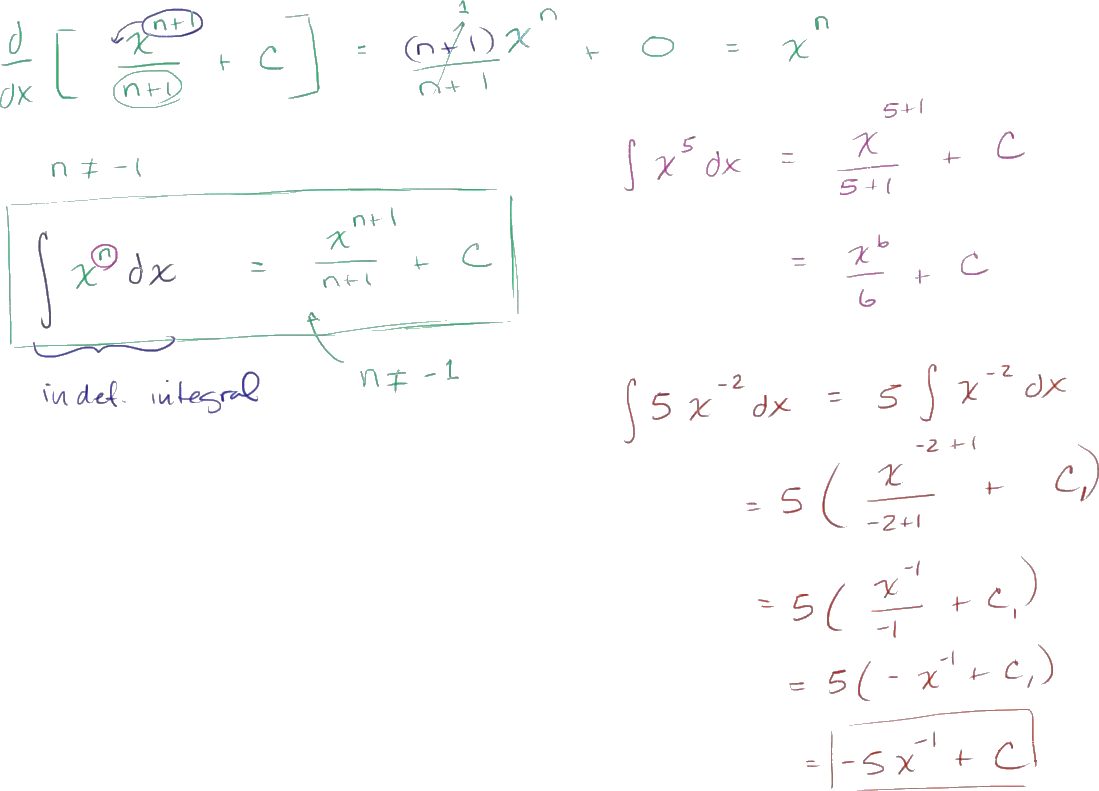 d/dx [ x^(n+1)/(n+1) + C ] = (n+1)x^n/(n+1) 1 + 0 = x^n
n ≠ -1
∫ x^n dx = x^(n+1)/(n+1) + C
indef. integral
n ≠ -1
∫ x^5 dx = x^(5+1)/(5+1) + C
= x^6/6 + C
∫ 5 x^(-2) dx = 5 ∫ x^(-2) dx
= 5 ( x^(-2+1)/(-2+1) + C₁)
= 5 ( x^(-1)/(-1) + C₁)
= 5 ( - x^(-1) + C₁)
= -5x^(-1) + C